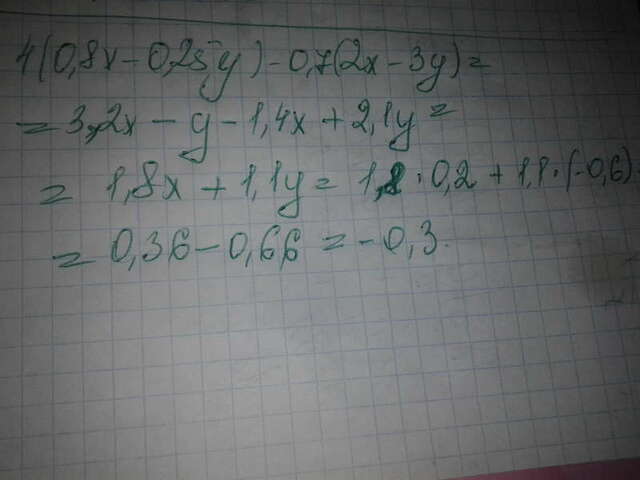 4(0,8x-0,25y)-0,7(2x-3y)=
=3,2x-y-1,4x+2,1y=
=1,8x+1,1y=1,8·0,2+1,1·(-0,6)=
=0,36-0,66=-0,3.